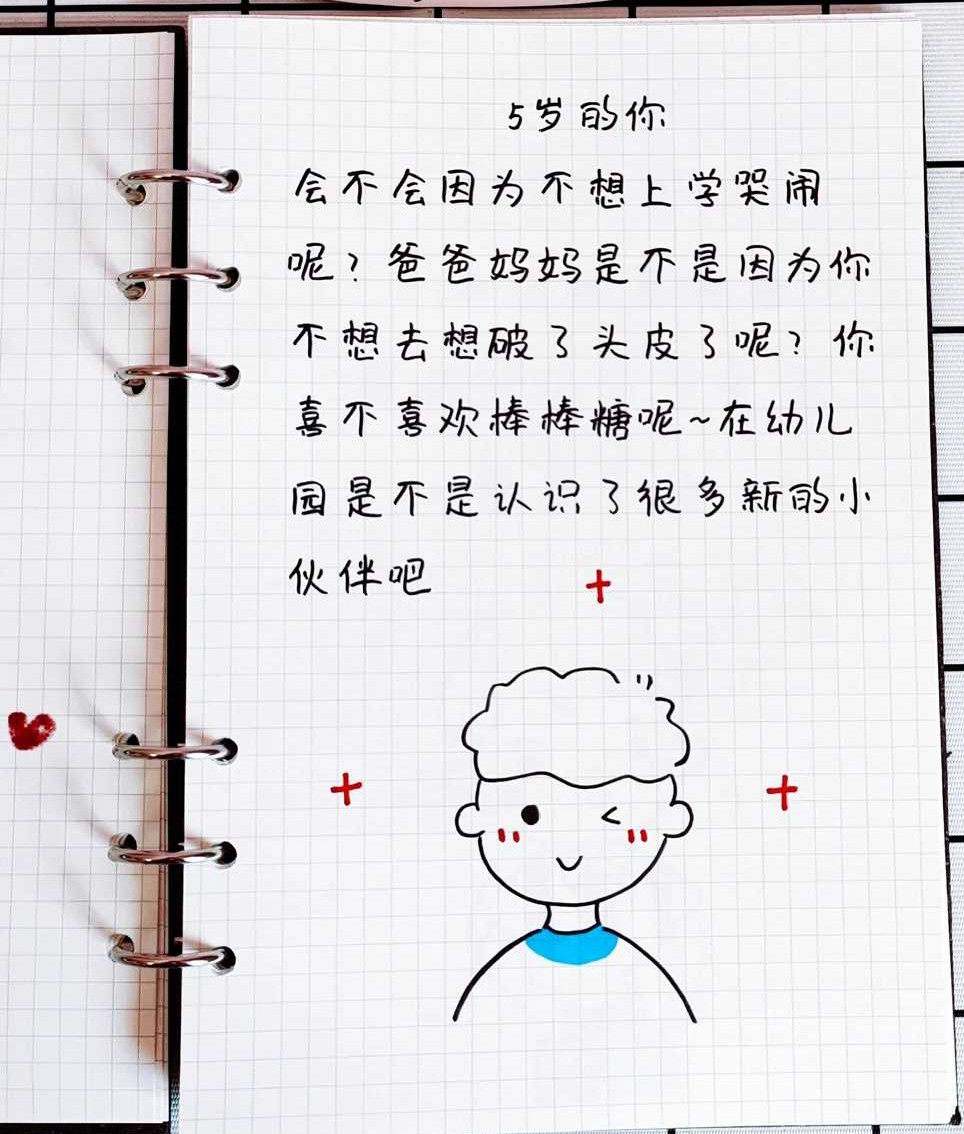 5岁的你
会不会因为不想上学哭闹
呢?爸爸妈妈是不是因为你
不想去想破了头皮了呢?你
喜不喜欢棒棒糖呢~在幼儿
园是不是认识了很多新的小
伙伴吧